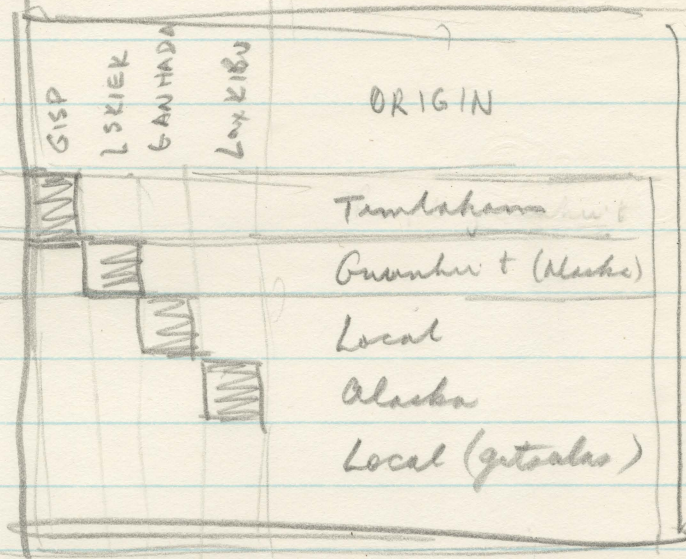 GISP
LSKIEK
GANHADA
LaxKIBU
ORIGIN
Temlaham
Gwunhu t (Alaska)
Local
Alaska
Local (gitsalas)